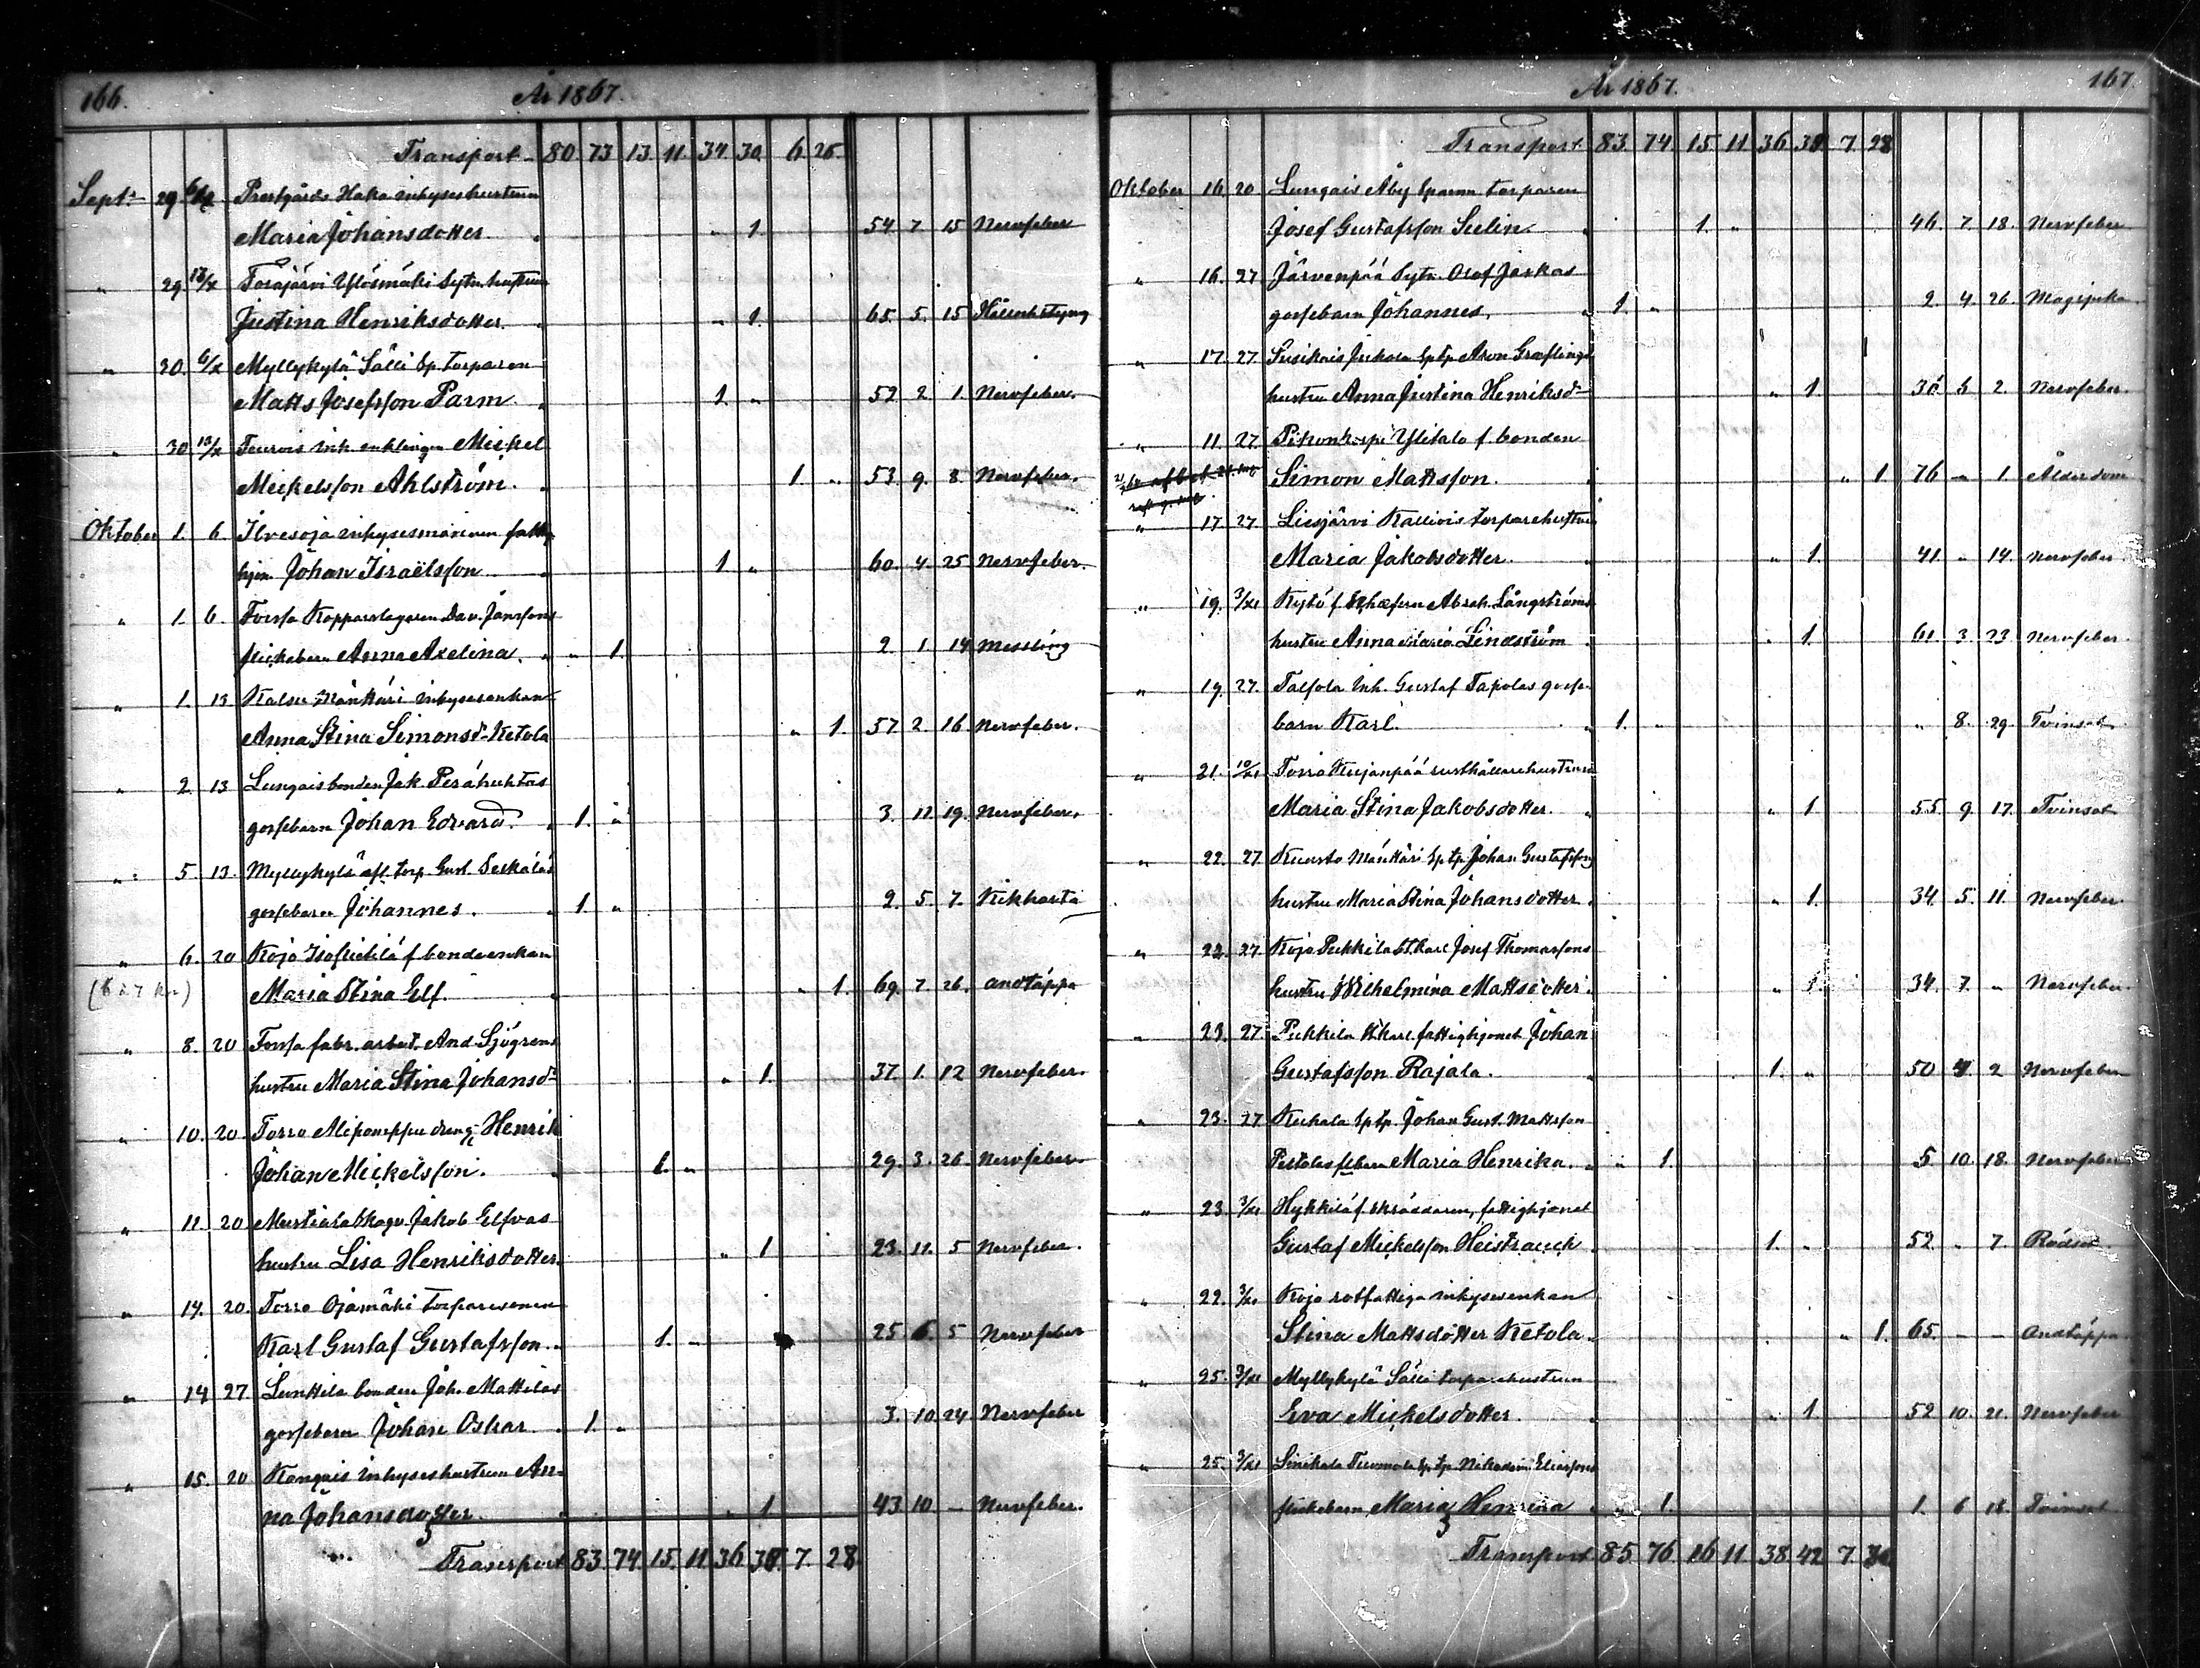 166. År 1867.
Transport 80 73 13 11 34 30 6 26
Sept: 29 6/X Prestgårds Haka inhyseshustrun
Maria Johansdotter. " 1. 54 7 15 Nervfeber
" 29. 13/X Torajärvi Ylösmäki Sytn. hustrun
Justina Henriksdotter. " 1. 65. 5. 15 Håll o. styng
" 30. 6/X Myllykylä Sälli Sp torparen
Matts Josefsson Parm. 1. " 52 2 1. Nervfeber.
" 30 13/X inh. enklingen Mickel
Mickelsson Ahlström. 1. " 53. 9. 8. Nervfeber.
Oktober 1. 6. Ilvesoja inhysesmannen fattig
hjon Johan Israëlsson 1. " 60. 4. 25 Nervfeber.
" 1. 6. Forssa Kopparslagaren Dav. Janssons
flickebarn Anna Axelina. " 1. 2 1. 14 Messling
" 1. 13 Kalsu Mänkäri inhysesenkan
Anna Stina Simonsd:r Ketola " 1. 57. 2. 16 Nervfeber.
" 2 13 Lungais bonden Jak. Perähuhtas
gossebarn Johan Edvard. 1. " 3. 11 19. Nervfeber.
" 5. 13. Myllykylä afl. torp. Gust. Seskäläs
gossebarn Johannes. 1. " 2. 5. 7. Kikhosta
" 6. 20 Kojo Isopietilä f bondeenkan
Maria Stina Elf. " 1. 69. 7 26. andtäppa
" 8. 20 Forssa fabr. arbet. And. Sjögrens
hustru Maria Stina Johansd:r " 1. 37. 1. 12 Nervfeber.
" 10. 20. Torro Aliponppu dreng. Henrik
Johan Mickelsson. 1. " 29. 3. 26 Nervfeber
" 11. 20 Mustiala Skogv. Jakob Elfvas
hustru Lisa Henriksdotter. " 1 23. 11. 5 Nervfeber.
" 14. 20. Torro Ojamäki torparesonen
Karl Gustaf Gustafsson. 1. " 25 6. 5 Nervfeber
" 14 27. Lunttila bonden Joh. Mattilas
gossebarn Johan Oskar. 1. " 3. 10 24 Nervfeber
" 15. 20 inhyseshustrun An-
na Johansdotter. " 1. 43 10. – Nervfeber.
Transport 83. 74. 15. 11. 36 7. 28.
År 1867. 167.
Transport 83. 74. 15. 11 36 7. 28
Oktober 16 20 Lungais Åby Sparnn torparen
Josef Gustafsson Selin. 1. " 46. 7. 18. Nervfeber
" 16. 27 Järvenpää Sytn. Olof Jaskas
gossebarn Johannes. 1. " 2. 4. 26. Magsjuka
" 17. 27 Susikais Sp tp Aron Græflings
hustru Anna Justina Henriksd:r " 1. 5 2. Nervfeber.
" 11. 27. Ylitalo f. bonden
Simon Mattsson. " 1. 76 – 1. Ålderdom
" 17. 27. Liesjärvi Kalliois torparehustrun
Maria Jakobsdotter. " 1. 41. " 14. Nervfeber
" 19. 3/XI Kytö f. Abrah. Långströms
hustru Anna Maria Lindström " 1. 61. 3. 23. Nervfeber
" 19. 27. inh. Gustaf Tapolas gosse-
barn Karl. 1. " " 8. 29. Tvinsot
" 21. 10/XI Torro Kujanpää rusthållarehustrun
Maria Stina Jakobsdotter. " 1 55. 9. 17. Tvinsot
" 22. 27 Kuusto Mänkäri Sp tp. Johan Gustafsson
hustru Maria Stina Johansdotter. " 1. 34. 5. 11. Nervfeber.
" 22. 27. Kojo Pukkila St.karl Josef Thomassons
hustru Wilhelmina Mattsdotter. " 1. 34. 7. " Nervfeber.
" 23. 27. Pukkila St.karl fattighjonet Johan
Gustafsson Rajala. 1. " 50 4. 2 Nervfeber
" 23. 27 Kuhala Sp tp. Johan Gust. Mattsson
flbarn Maria Henrika. " 1. 5. 10. 18. Nervfeber
" 23. 3/XI Hykkilä f. skräddaren, fattighjonet
Gustaf Mickelsson Heistrauck 1. " 52. " 7. Rödsot
" 22. 3/XI Kojo rotfattiga inhysesenkan
Stina Mattsdotter Ketola. " 1. 65. – – Andtäppa
" 25. 3/XI Myllykylä Sälli torparehustrun
Eva Mickelsdotter. " 1 52 10. 21. Nervfeber
" 25. 3/XI Sinikala Tuomola Sp tp. Nikodem Eliassons
flickebarn Maria Henrina " 1. 1. 6 18. Tvinsot
Transport 85. 76. 16 11. 38. 42 7.